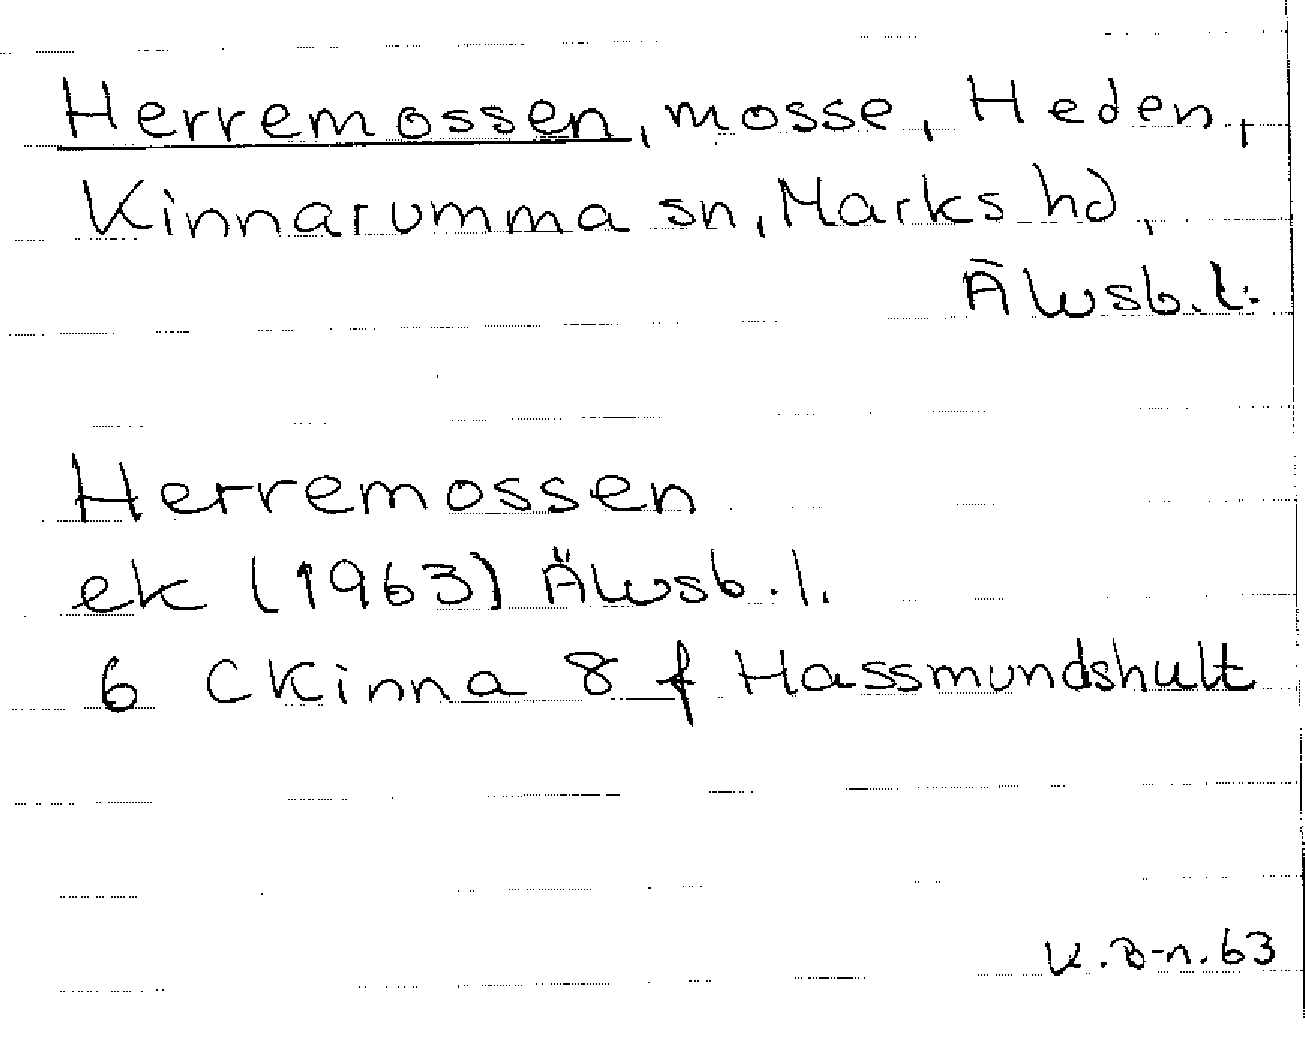 Herremossen, mosse, Heden,
Kinnarumma sn, Marks hd,
Älvsb. l.
Herremossen
ek (1963) Älvsb. l.
6 C Kinna 8 f Hassmundshult
K. B-n. 63